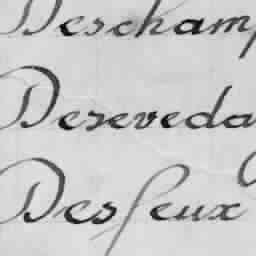 Descham
Deseveda
Desseux